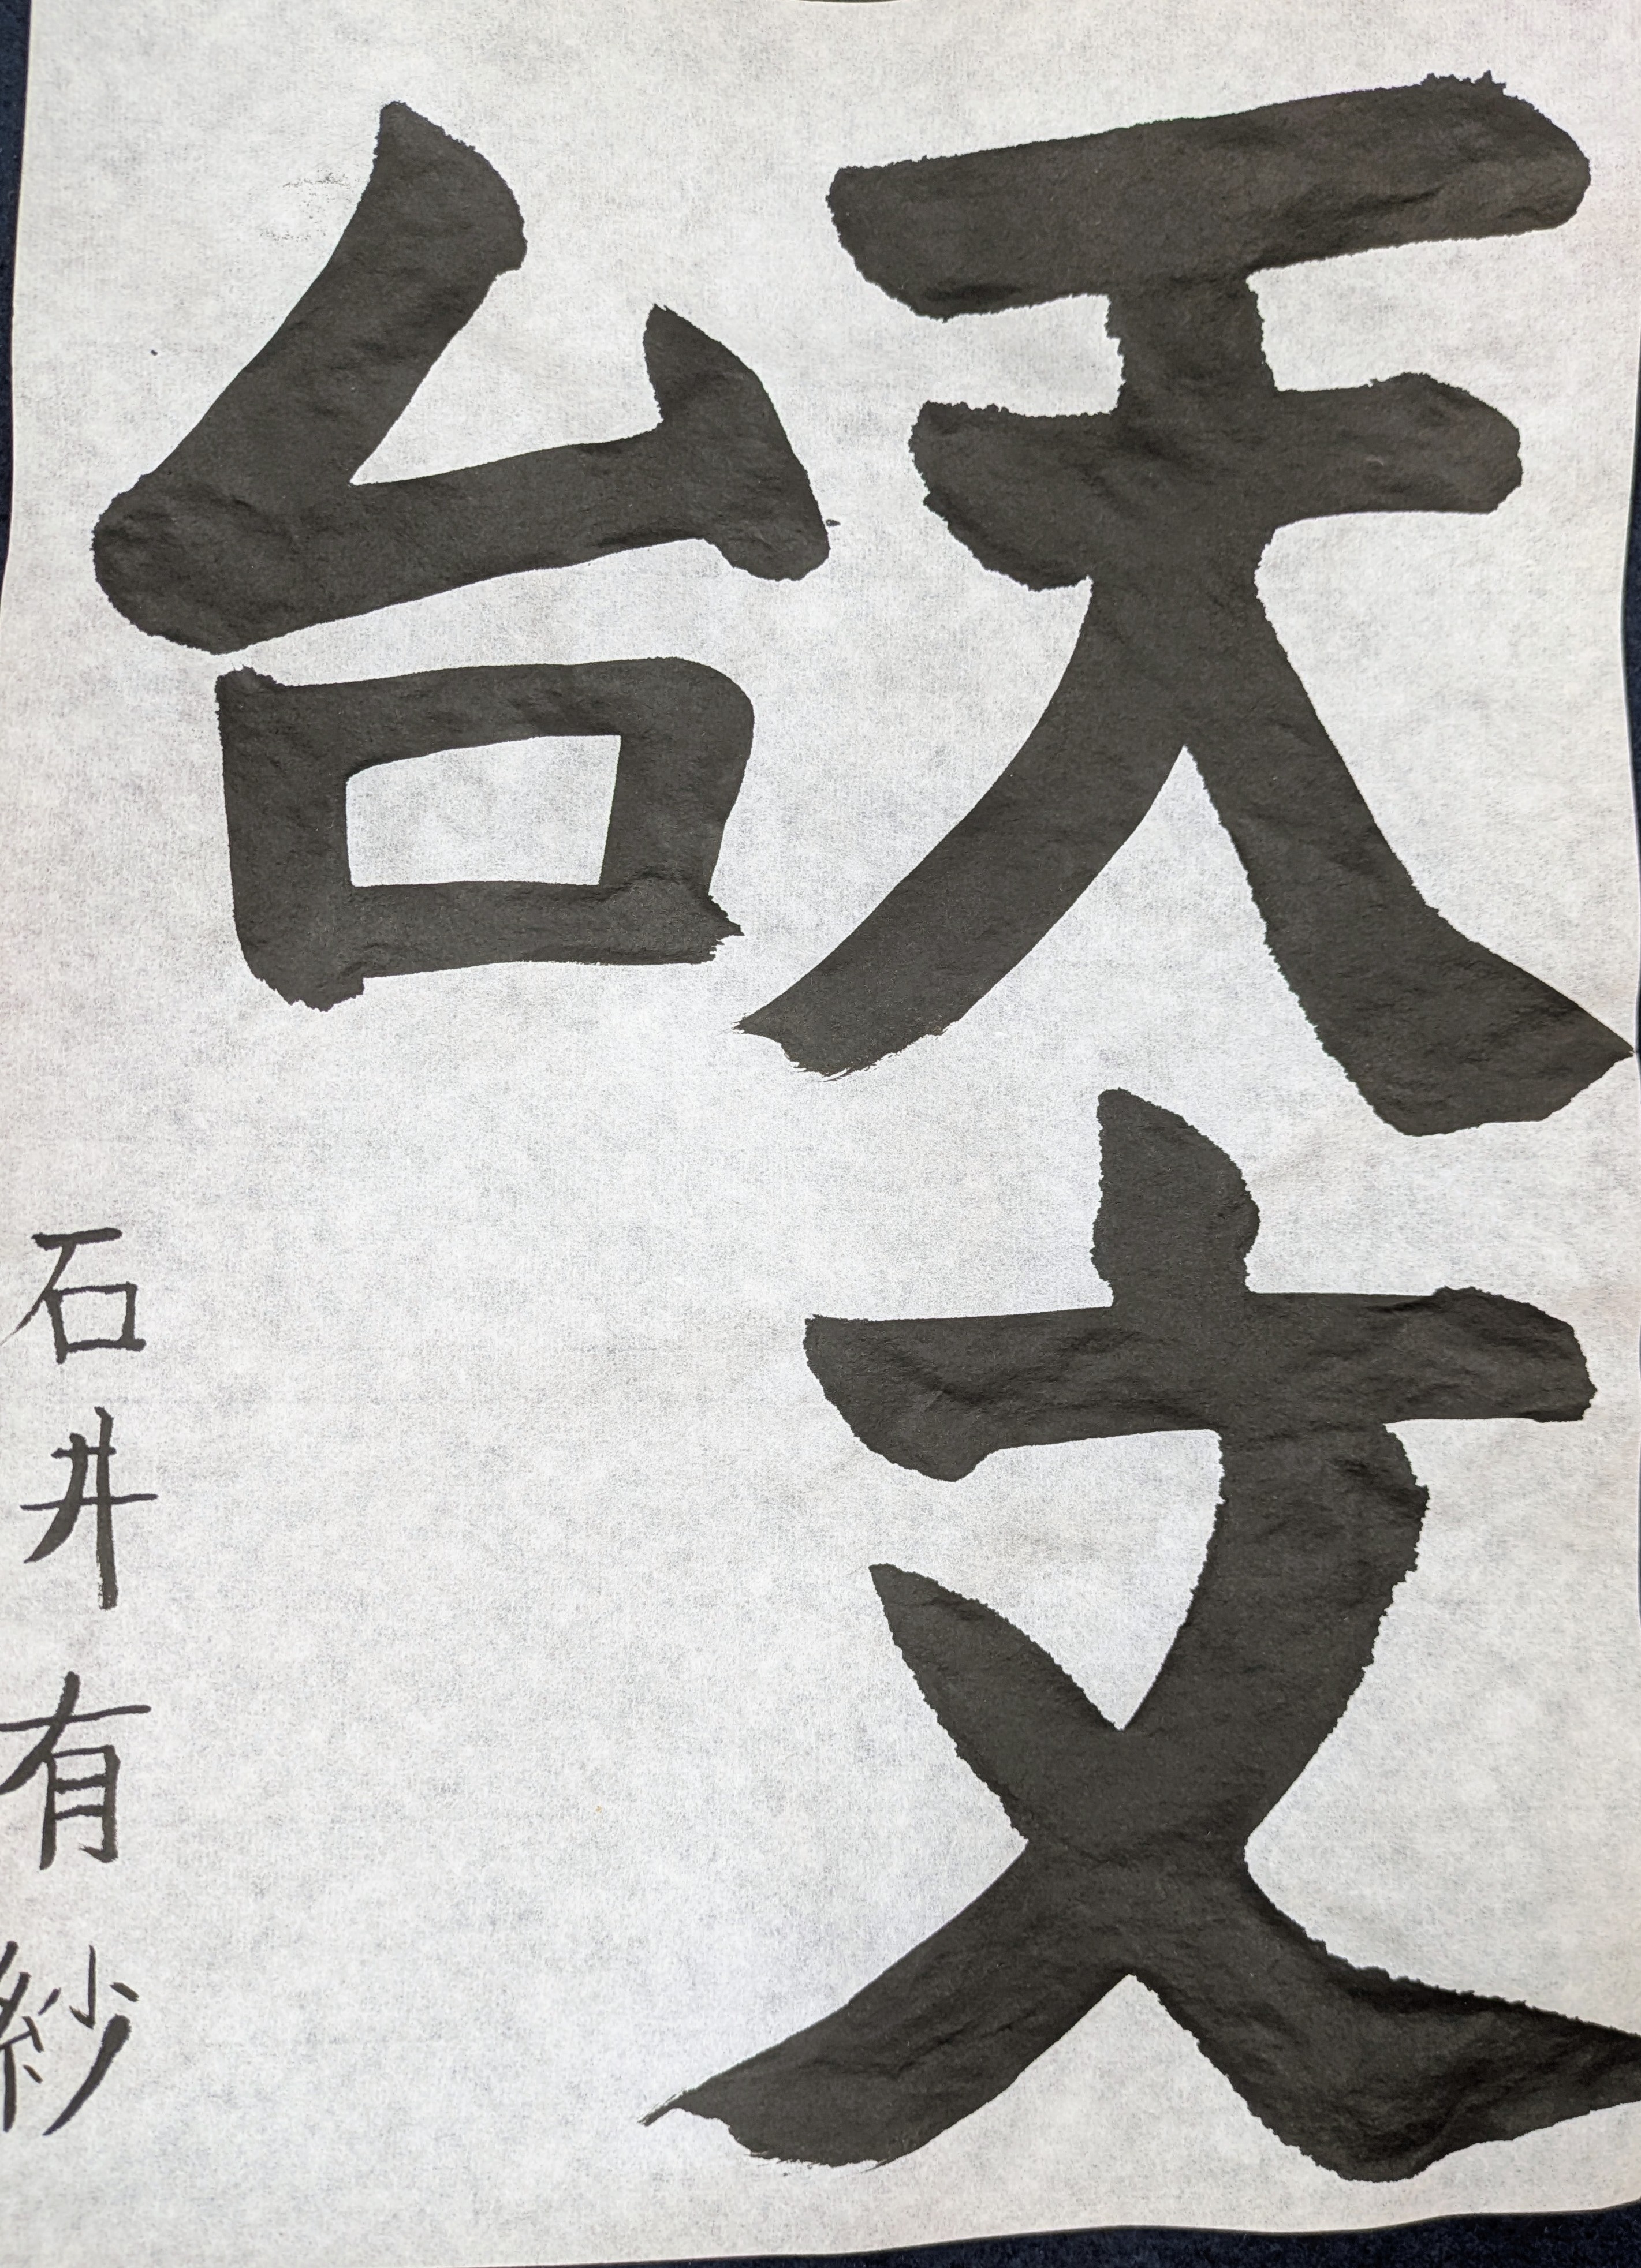 天文
台
石井有紗